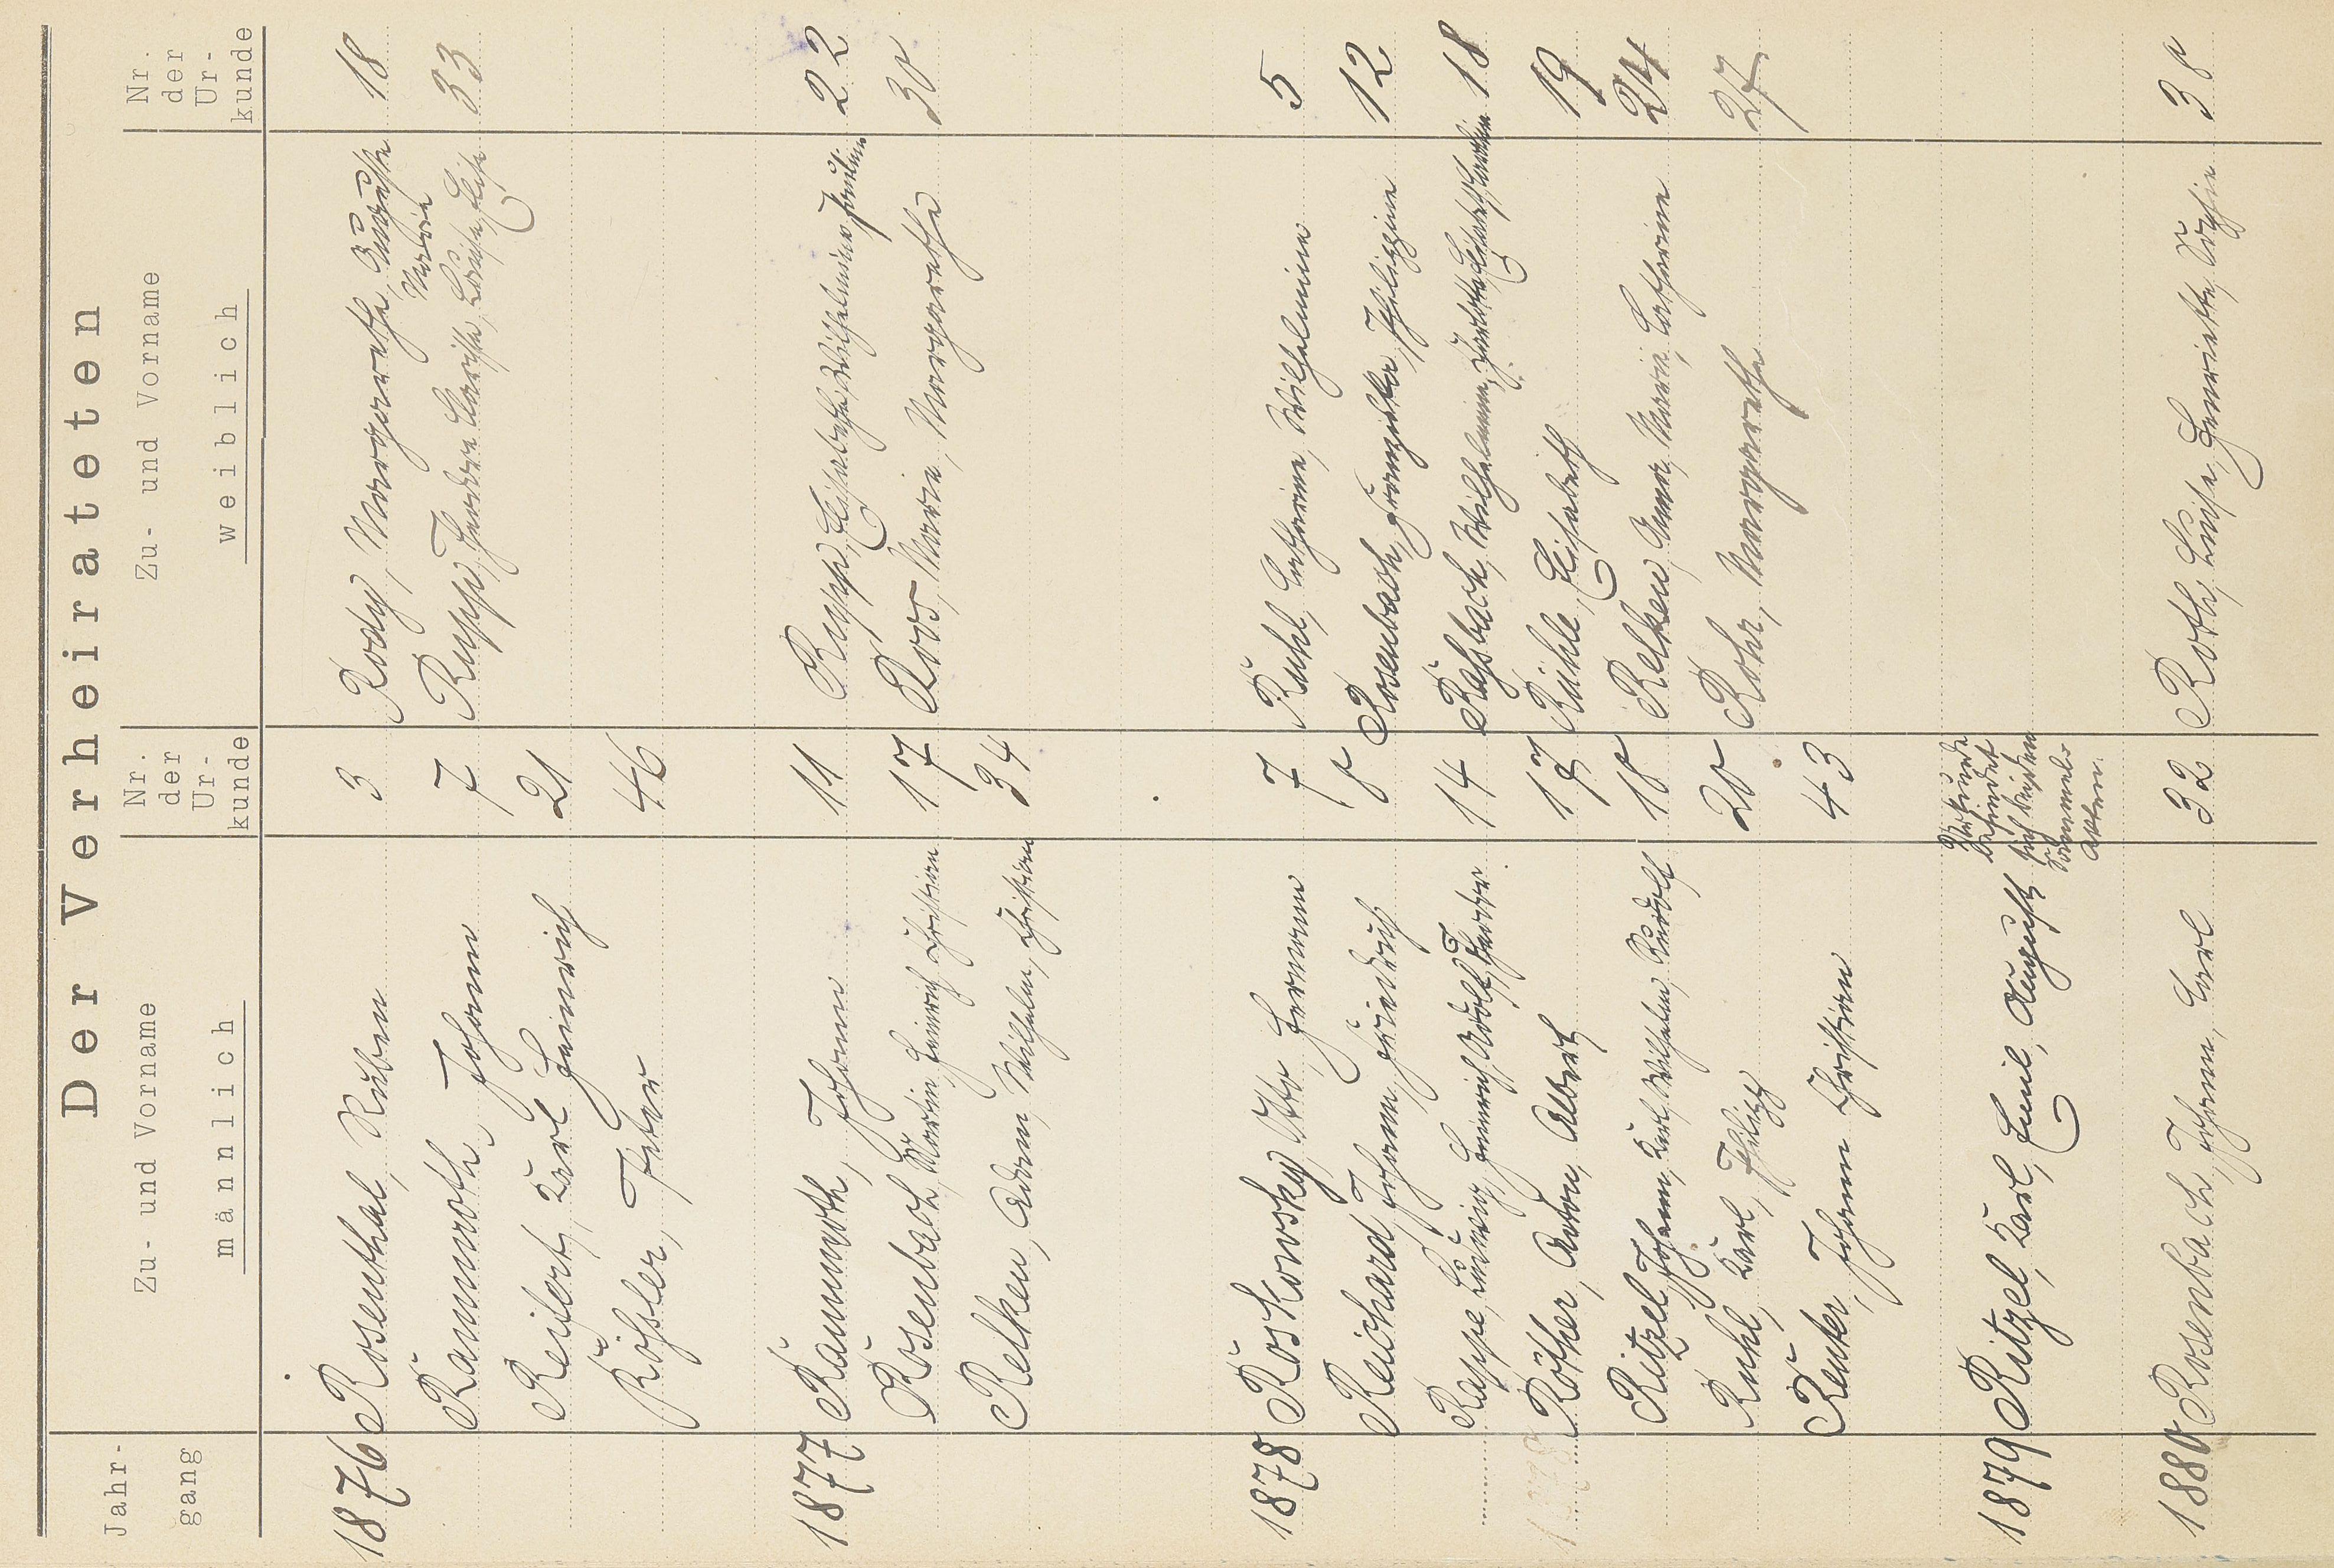 Der Verheirateten
Jahr-gang Zu- und Vorname männlich Nr. der Ur-kunde Zu- und Vorname weiblich Nr. der Ur-kunde
1876 Rosenthal, Ruben 3 Rody, Margarethe, Auguste Marie 18
Rammroth, Johann 7 Rupp, Karoline, Louise, Elise 33
Reifert, Karl Heinrich 21
Rößler, Peter 46
1877 Rammroth, Johann 11 Rupp, Elisabethe, Wilhelmine, Pauline 22
Rosenbach, Martin, Heinrich, Christian 17 Roos, Marie, Margarethe 30
Relken, Adam, Wilhelm, Christian 34
1878 Roskowsky, Otto Hermann 7 Ruhl, Catharine, Wilhelmine 5
Reichard, Johann, Friedrich 8 Rosenbach, Franziska, Philippine 12
Rappe, Ludwig, Heinrich, Adolf, Theodor 14 Raßbach, Wilhelmine, Elisabeth 18
Röther, Anton, Albert 17 Rühle, Elisabeth 19
Ritzel, Johann, Karl, Wilhelm, Rudolf 18 Relken, Anna, Maria, Catharine 24
Ruhl, Karl, Philipp 20 Rohr, Margarethe 27
Renker, Johann Christian 43
1879 Ritzel, Karl, Emil, August Urkunde befindet sich bei den Sammelakten.
1880 Rosenbach, Johann, Carl 32 Roth, Luise, Henriette, Sophie 38